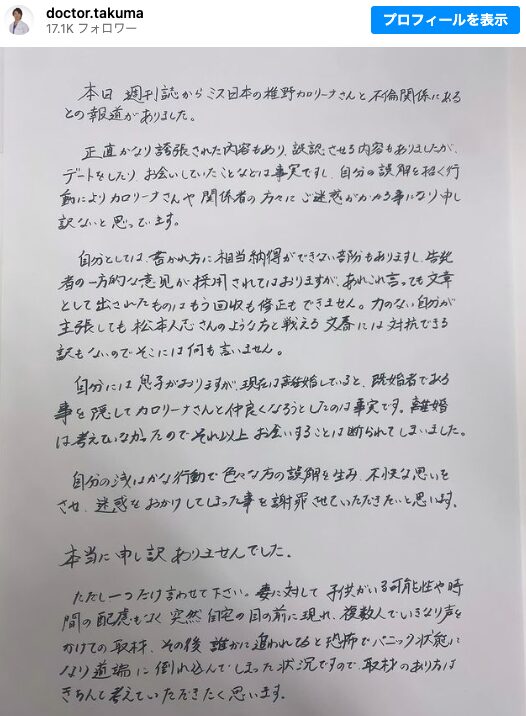 doctor.takuma
17.1K フォロワー
プロフィールを表示
本日 週刊誌から ミス日本の椎野カロリーナさんと 不倫関係にある
との報道がありました。
正直かなり誇張された内容もあり、誤認させる内容もありましたが、
デートをしたり お会いしていたことなどは事実ですし、自分の誤解を招く行
動により カロリーナさんや 関係者の方々に ご迷惑がかかる事になり申し
訳ないと思っています。
自分としては、書かれ方に相当納得ができない部分もありますし、告発
者の一方的な意見が 採用されてはおりますが、あれこれ言っても文章
として出されたものはもう回収も修正もできません。力のない自分が
主張しても 松本人志さんのような方と戦える文春には対抗できる
訳もないのでそこには何も言いません。
自分には 息子がおりますが、現在は離婚していると、既婚者である
事を隠してカロリーナさんと仲良くなろうとしたのは事実です。離婚
は考えていなかったので それ以上 お会いすることは断られてしまいました。
自分の浅はかな行動で色々な方の誤解を生み、不快な思いを
させ、迷惑をおかけしてしまった事を謝罪させていただきたいと思います。
本当に申し訳ありませんでした。
ただし一つだけ言わせて下さい。妻に対して 子供がいる可能性や時
間の配慮もなく 突然 自宅の目の前に現れ、複数人でいきなり声を
かけての取材、その後 誰かに追われてると恐怖でパニック状態に
なり道端に 倒れ込んでしまった状況ですので、取材のあり方は
きちんと考えていただきたく思います。